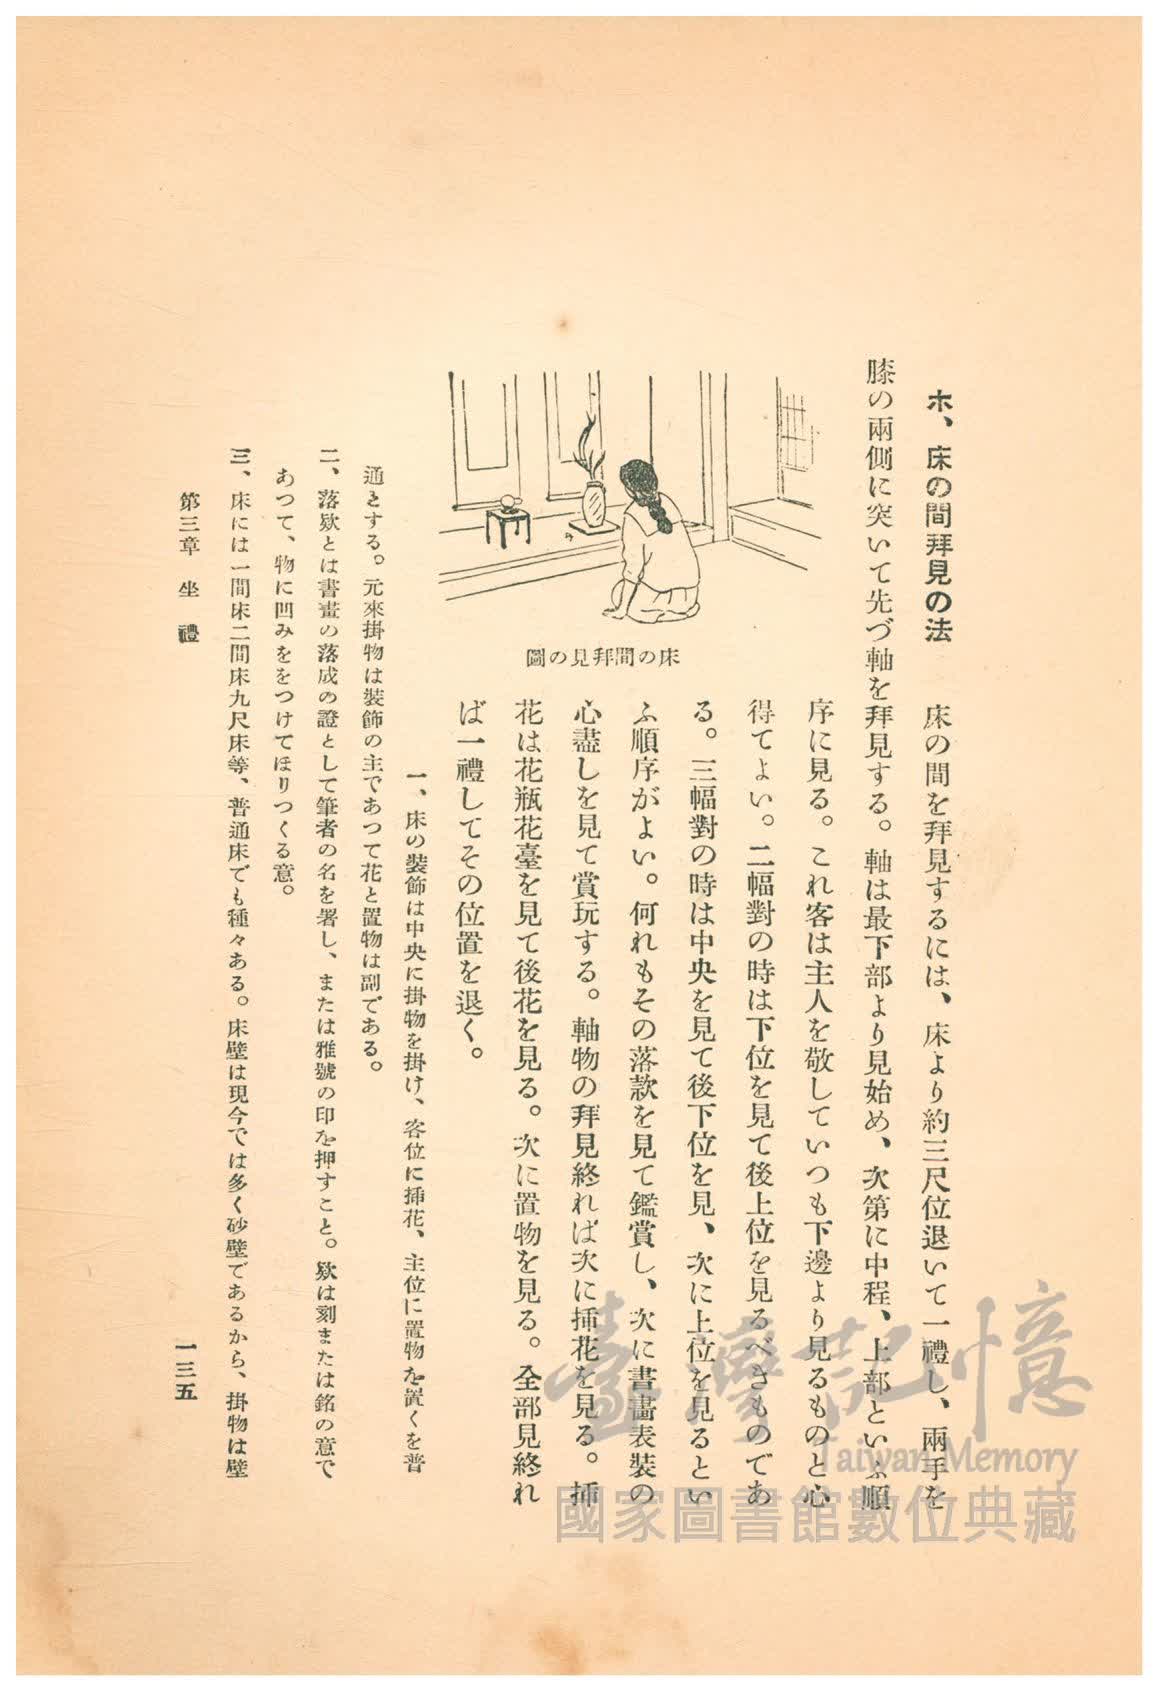 ホ、床の間拜見の法　床の間を拜見するには、床より約三尺位退いて一禮し、兩手を
膝の兩側に突いて先づ軸を拜見する。軸は最下部より見始め、次第に中程、上部といふ順
序に見る。これ客は主人を敬していつも下邊より見るものと心
得てよい。二幅對の時は下位を見て後上位を見るべきものであ
る。三幅對の時は中央を見て後下位を見、次に上位を見るとい
ふ順序がよい。何れもその落款を見て鑑賞し、次に書畵表裝の
心盡しを見て賞玩する。軸物の拜見終れば次に揷花を見る。揷
花は花瓶花臺を見て後花を見る。次に置物を見る。全部見終れ
ば一禮してその位置を退く。
床の間拜見の圖
一、床の裝飾は中央に掛物を掛け、客位に揷花、主位に置物を置くを普
通とする。元來掛物は裝飾の主であつて花と置物は副である。
二、落欵とは書畫の落成の證として筆者の名を署し、または雅號の印を押すこと。欵は刻または銘の意で
あつて、物に凹みををつけてほりつくる意。
三、床には一間床二間床九尺床等、普通床でも種々ある。床壁は現今では多く砂壁であるから、掛物は壁
第三章　坐　禮
一三五
臺灣記憶
Taiwan Memory
國家圖書館數位典藏